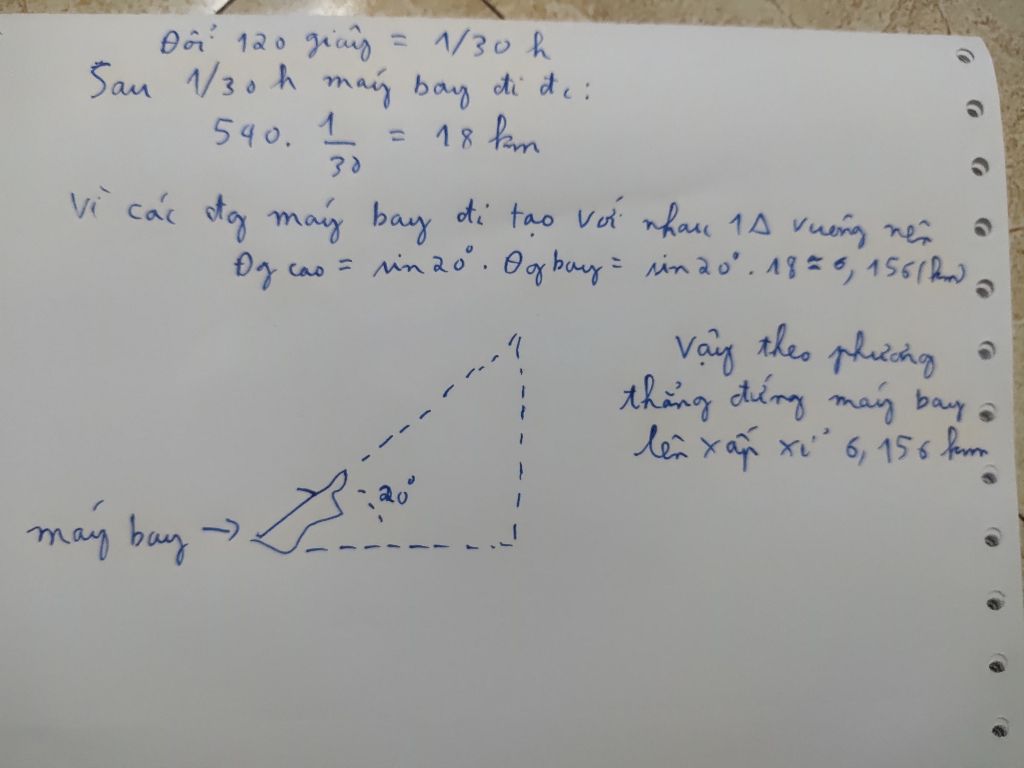 Đổi 120 giây = 1/30 h
Sau 1/30 h máy bay đi đc:
540. 1/30 = 18 km
Vì các đg máy bay đi tạo với nhau 1Δ vuông nên
Đg cao = sin20°. Đg bay = sin20°. 18 ≈ 6,156(km)
Vậy theo phương
thẳng đứng máy bay
lên xấp xỉ 6,156 km
20°
máy bay →